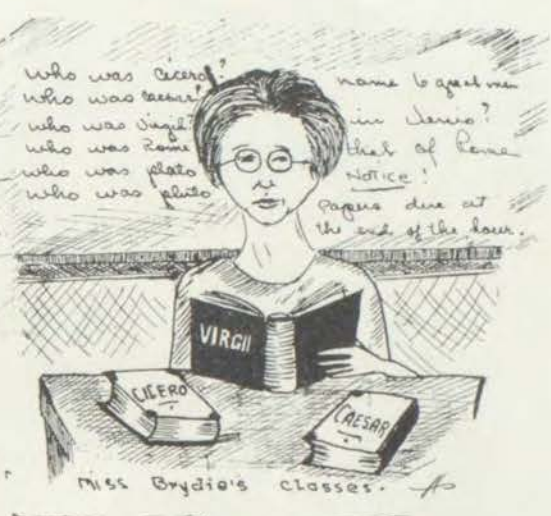 who was Cicero?
who was Caesar?
who was Virgil?
who was Rome
who was plato
who was pluto
name 6 great men
in ?
that of Rome
NOTICE!
papers due at
the end of the hour.
VIRGIL
CICERO
CAESAR
Miss Brydie's classes.